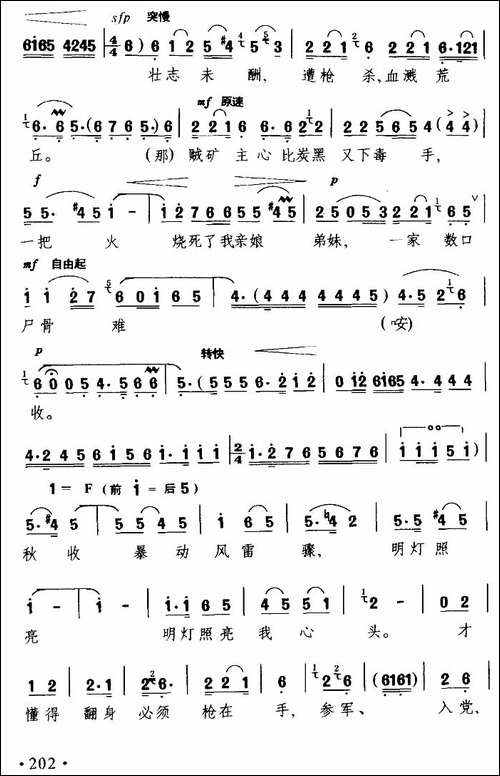 sfp 突慢
6165 4245 | 4/4 6) 6 1 2 5 #4 5 3 | 2 2 1 6 2 2 1 6·121
壮志 未 酬, 遭枪 杀,血溅 荒
mf 原速
6· 6 5·(6 7 6 5·)6 | 2 2 1 6 6 2 2 | 2 2 5 6 5 4 (4 4)
丘。 (那) 贼矿 主心 比炭黑 又下毒 手,
f p
5 5· #4 5 1 - | 1 2 7 6 6 5 5 #4 5 | 2 5 0 5 3 2 2 1 6 5
一把 火 烧死了我亲娘 弟妹, 一家 数口
mf 自由起
1 1 2 7 6 0 1 6 5 | 4·(4 4 4 4 4 4 5) 4· 5 2 6
尸骨 难 (安)
p 转快
6 0 0 5 4· 5 6 6 | 5·(5 5 5 6· 2 1 2 | 0 12 6165 4· 4 4 4
收。
4·2 4 5 6 1 5 6 1· 1 1 1 | 2/4 1·2 7 6 5 6 7 6 | 1 1 1 5 1)
1= F (前 1=后5)
5· #4 5 | 5 5 4 5 | 1 6 5 | 5· 4 2 | 5·5 #4 5
秋 收 暴 动 风雷 骤, 明灯 照
1 - | 1 - | 1·1 6 5 | 4 5 5 1 | 2 - | 0 2
亮 明灯照亮 我 心 头。 才
1 2 | 2·1 | 2 6· | 2 2 1 | 6 2 6 | (6161) | 2 6
懂得 翻身 必须 枪在 手, 参军、 入党,
· 202 ·